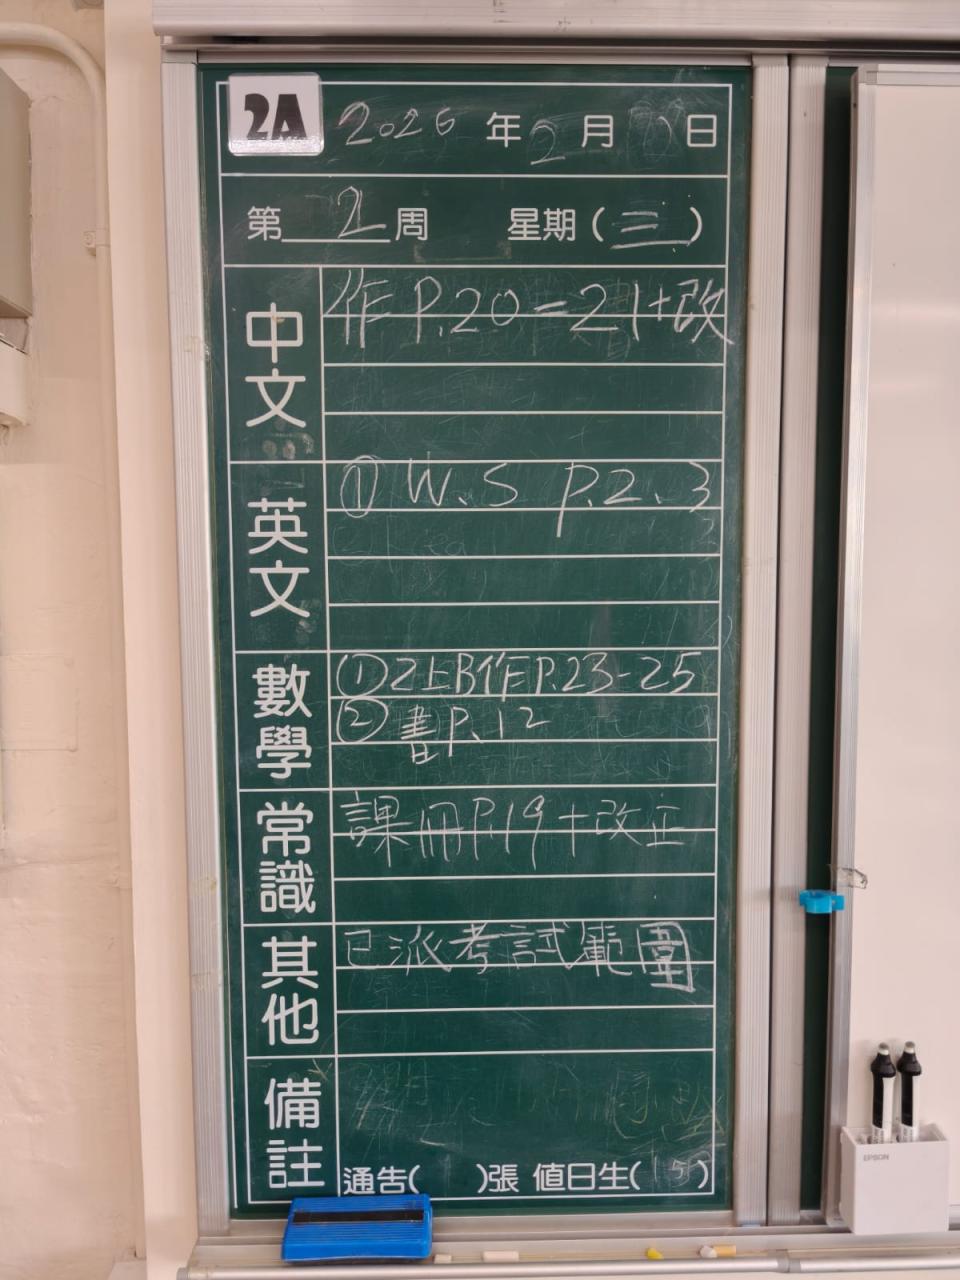 2A 2026 年 2 月 日
第 2 周 星期 (三)
中文
作 P.20-21+改
英文
① W.S P.2、3
數學
①2上B作P.23-25
② 書P.12
常識
課冊P.19+改正
其他
已派考試範圍
備註
通告( )張 值日生(15)
EPSON